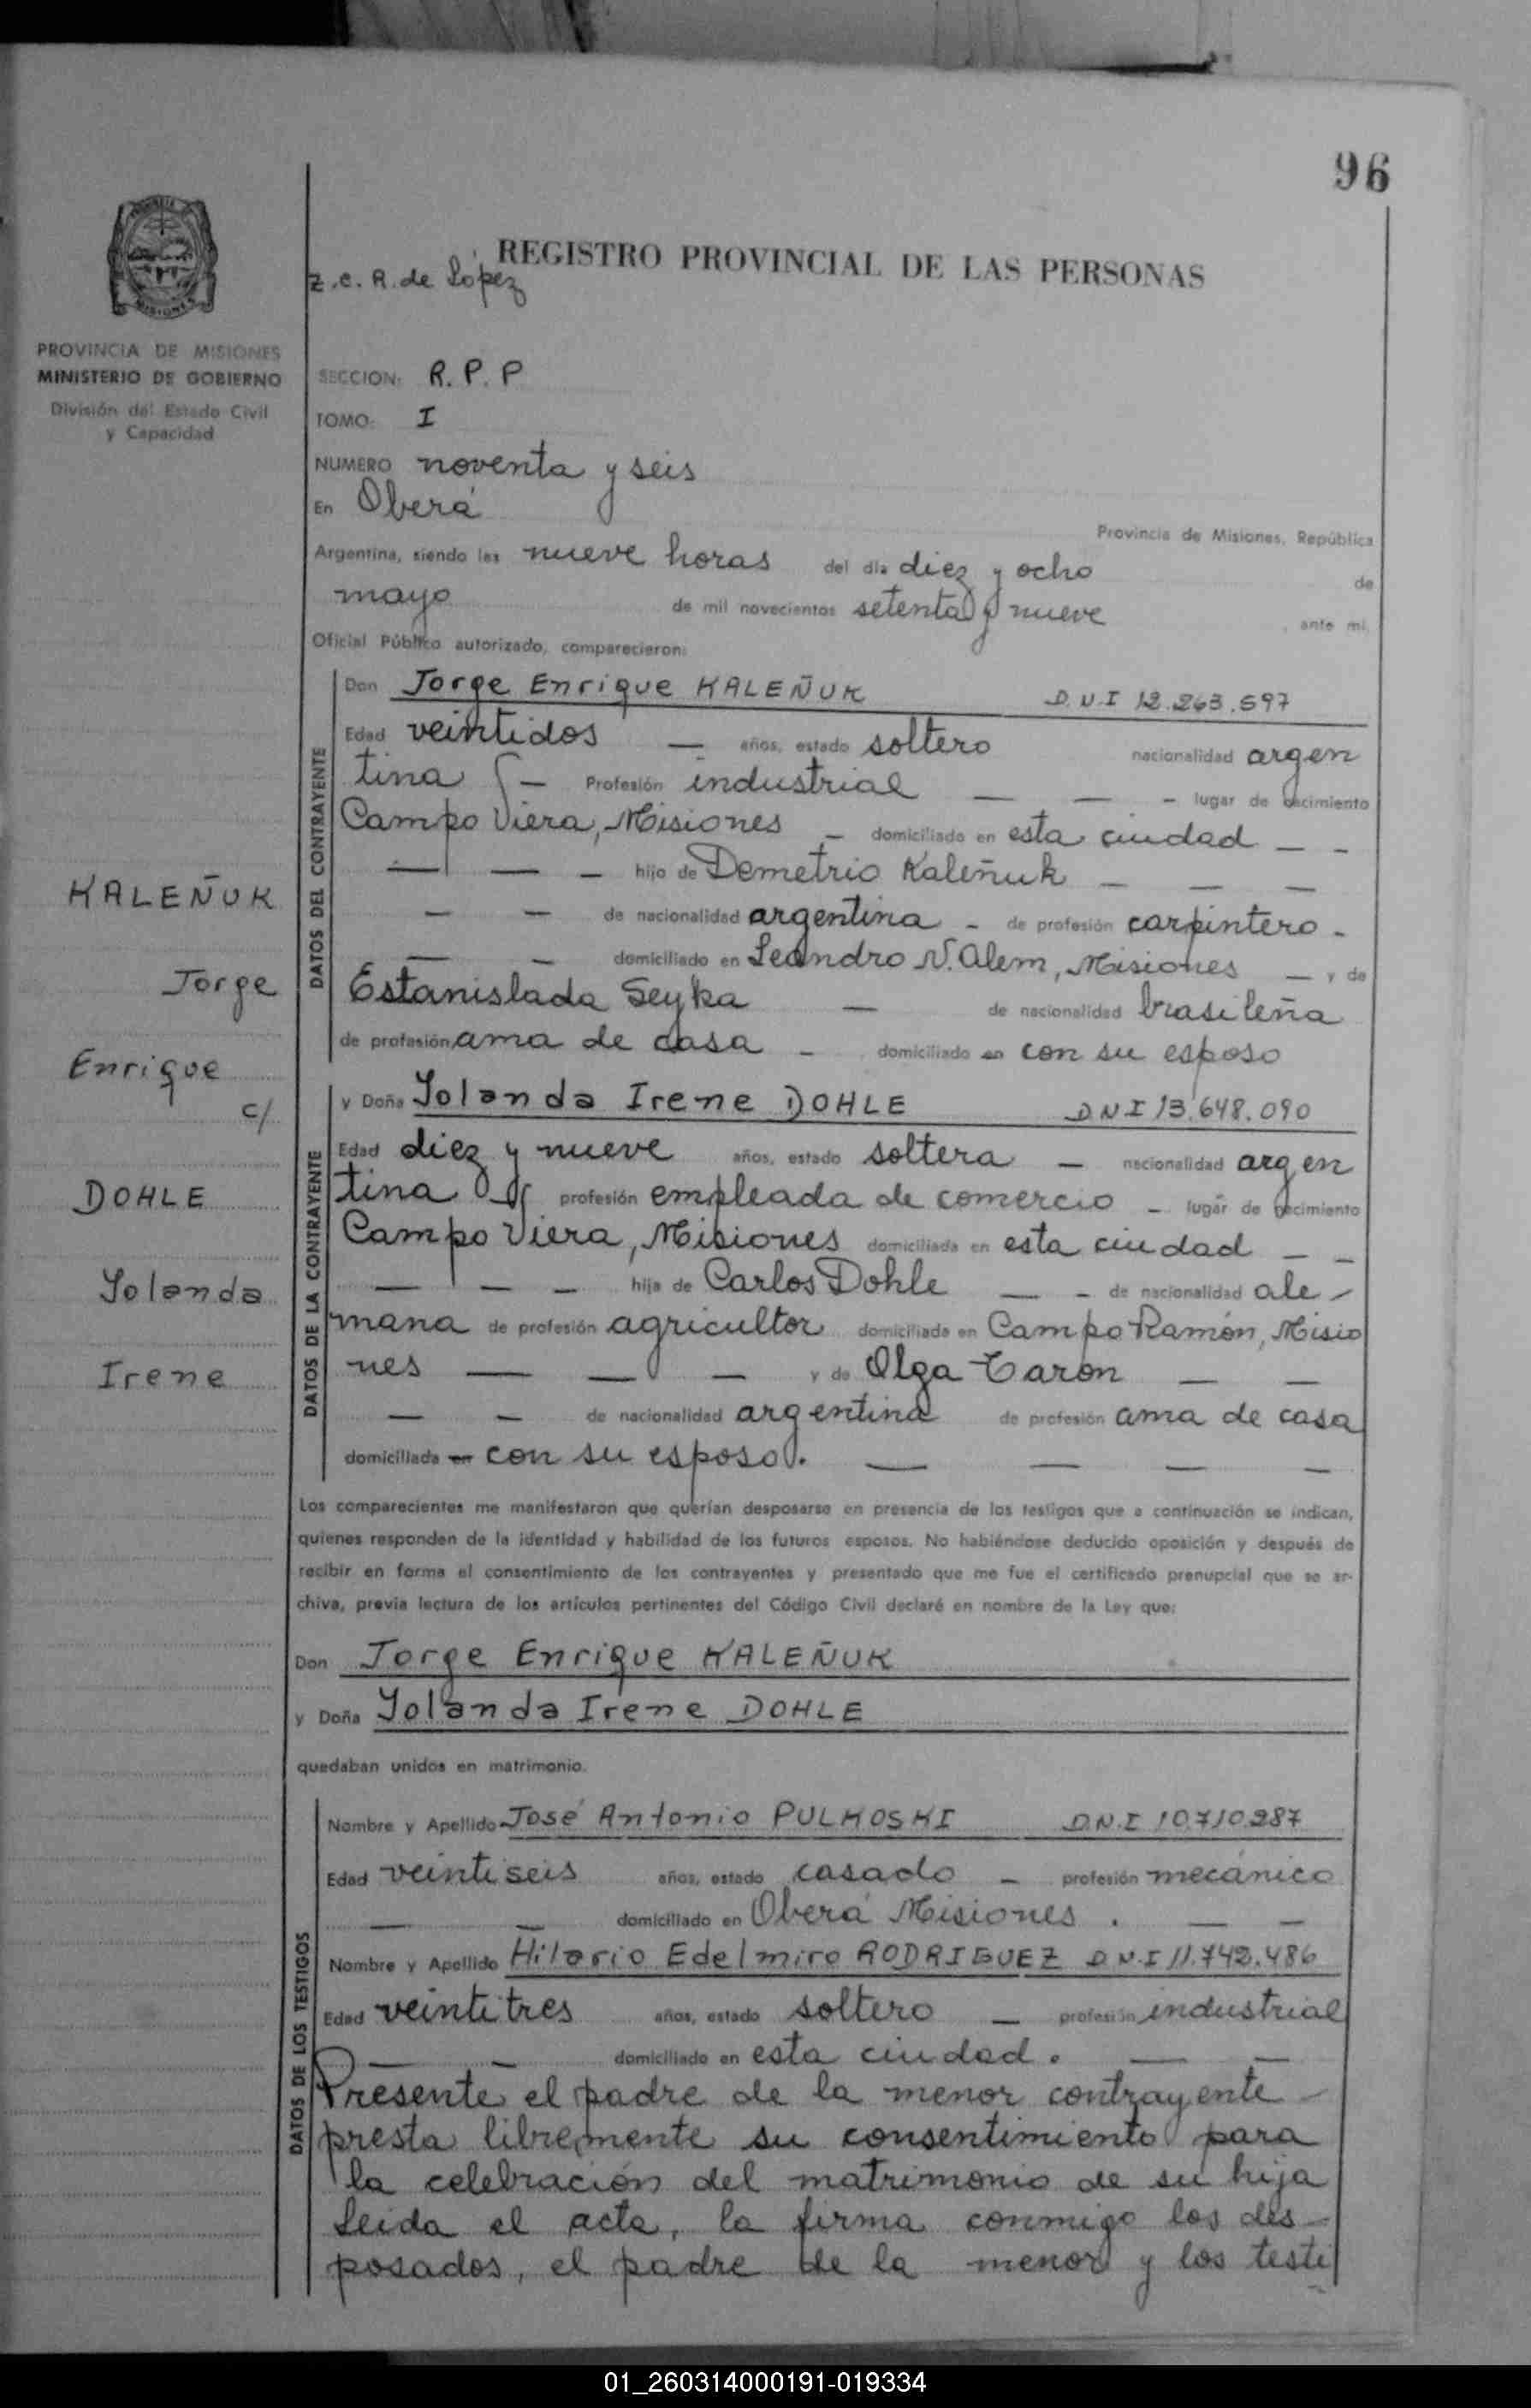 96
REGISTRO PROVINCIAL DE LAS PERSONAS
Z.C.R. de López
PROVINCIA DE MISIONES
MINISTERIO DE GOBIERNO
División del Estado Civil
y Capacidad
SECCION: R.P.P
TOMO: I
NUMERO noventa y seis
En Oberá
Provincia de Misiones, República
Argentina, siendo las nueve horas del día diez y ocho de
mayo de mil novecientos setenta y nueve, ante mí,
Oficial Público autorizado, comparecieron:
DATOS DEL CONTRAYENTE
Don Jorge Enrique KALEÑUK D.N.I 12.263.597
Edad veintidos — años, estado soltero nacionalidad argen
tina — Profesión industrial — — — lugar de nacimiento
Campo Viera, Misiones — domiciliado en esta ciudad — —
— — — hijo de Demetrio Kaleñuk — — —
— — de nacionalidad argentina — de profesión carpintero —
— — domiciliado en Leandro N. Alem, Misiones — y de
Estanislada Seyka — de nacionalidad brasileña
de profesión ama de casa — domiciliado en con su esposo
KALEÑUK
Jorge
Enrique
c/
DOHLE
Yolanda
Irene
DATOS DE LA CONTRAYENTE
y Doña Yolanda Irene DOHLE DNI 13.648.090
Edad diez y nueve años, estado soltera — nacionalidad argen
tina profesión empleada de comercio — lugar de nacimiento
Campo Viera, Misiones domiciliada en esta ciudad — —
— — — hija de Carlos Dohle — — de nacionalidad ale-
mana de profesión agricultor domiciliado en Campo Ramón, Misio
nes — — — y de Olga Caron — —
— — de nacionalidad argentina de profesión ama de casa
domiciliada en con su esposo. — — — —
Los comparecientes me manifestaron que querían desposarse en presencia de los testigos que a continuación se indican,
quienes responden de la identidad y habilidad de los futuros esposos. No habiéndose deducido oposición y después de
recibir en forma el consentimiento de los contrayentes y presentado que me fue el certificado prenupcial que se ar-
chiva, previa lectura de los artículos pertinentes del Código Civil declaré en nombre de la Ley que:
Don Jorge Enrique KALEÑUK
y Doña Yolanda Irene DOHLE
quedaban unidos en matrimonio.
DATOS DE LOS TESTIGOS
Nombre y Apellido José Antonio PULKOSKI D.N.I 10.710.287
Edad veintiseis años, estado casado — profesión mecánico
— — domiciliado en Oberá Misiones . — —
Nombre y Apellido Hilario Edelmiro RODRIGUEZ D.N.I 11.742.486
Edad veintitres años, estado soltero — profesión industrial
— — domiciliado en esta ciudad. — —
Presente el padre de la menor contrayente —
presta libremente su consentimiento para
la celebración del matrimonio de su hija
Leida el acta, la firma conmigo los des-
posados, el padre de la menor y los testi
01_260314000191-019334